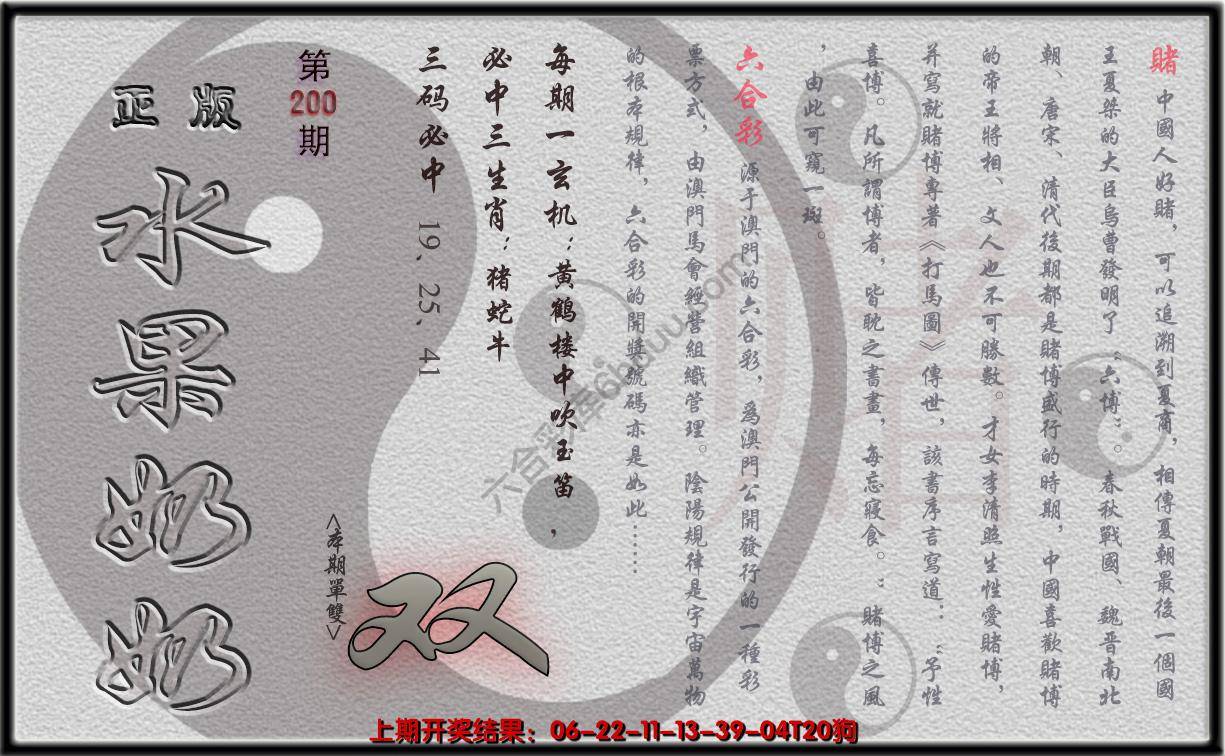 賭 中國人好賭，可以追溯到夏商，相傳夏朝最後一個國
王夏桀的大臣烏曹發明了“六博”。春秋戰國、魏晉南北
朝、唐宋、清代後期都是賭博盛行的時期，中國喜歡賭博
的帝王將相、文人也不可勝數。才女李清照生性愛賭博，
并寫就賭博專著《打馬圖》傳世，該書序言寫道：“予性
喜博。凡所謂博者，皆耽之晝晝，每忘寢食。”賭博之風
，由此可窺一斑。
六合彩 源于澳門的六合彩，爲澳門公開發行的一種彩
票方式，由澳門馬會經營組織管理。陰陽規律是宇宙萬物
的根本規律，六合彩的開獎號碼亦是如此……
每期一玄机：黄鹤楼中吹玉笛，
必中三生肖：猪蛇牛
三码必中 19、25、41
第
200
期
正版
水果奶奶
<本期單雙>
双
上期开奖结果：06-22-11-13-39-04T20狗
六合彩库6huuu.com